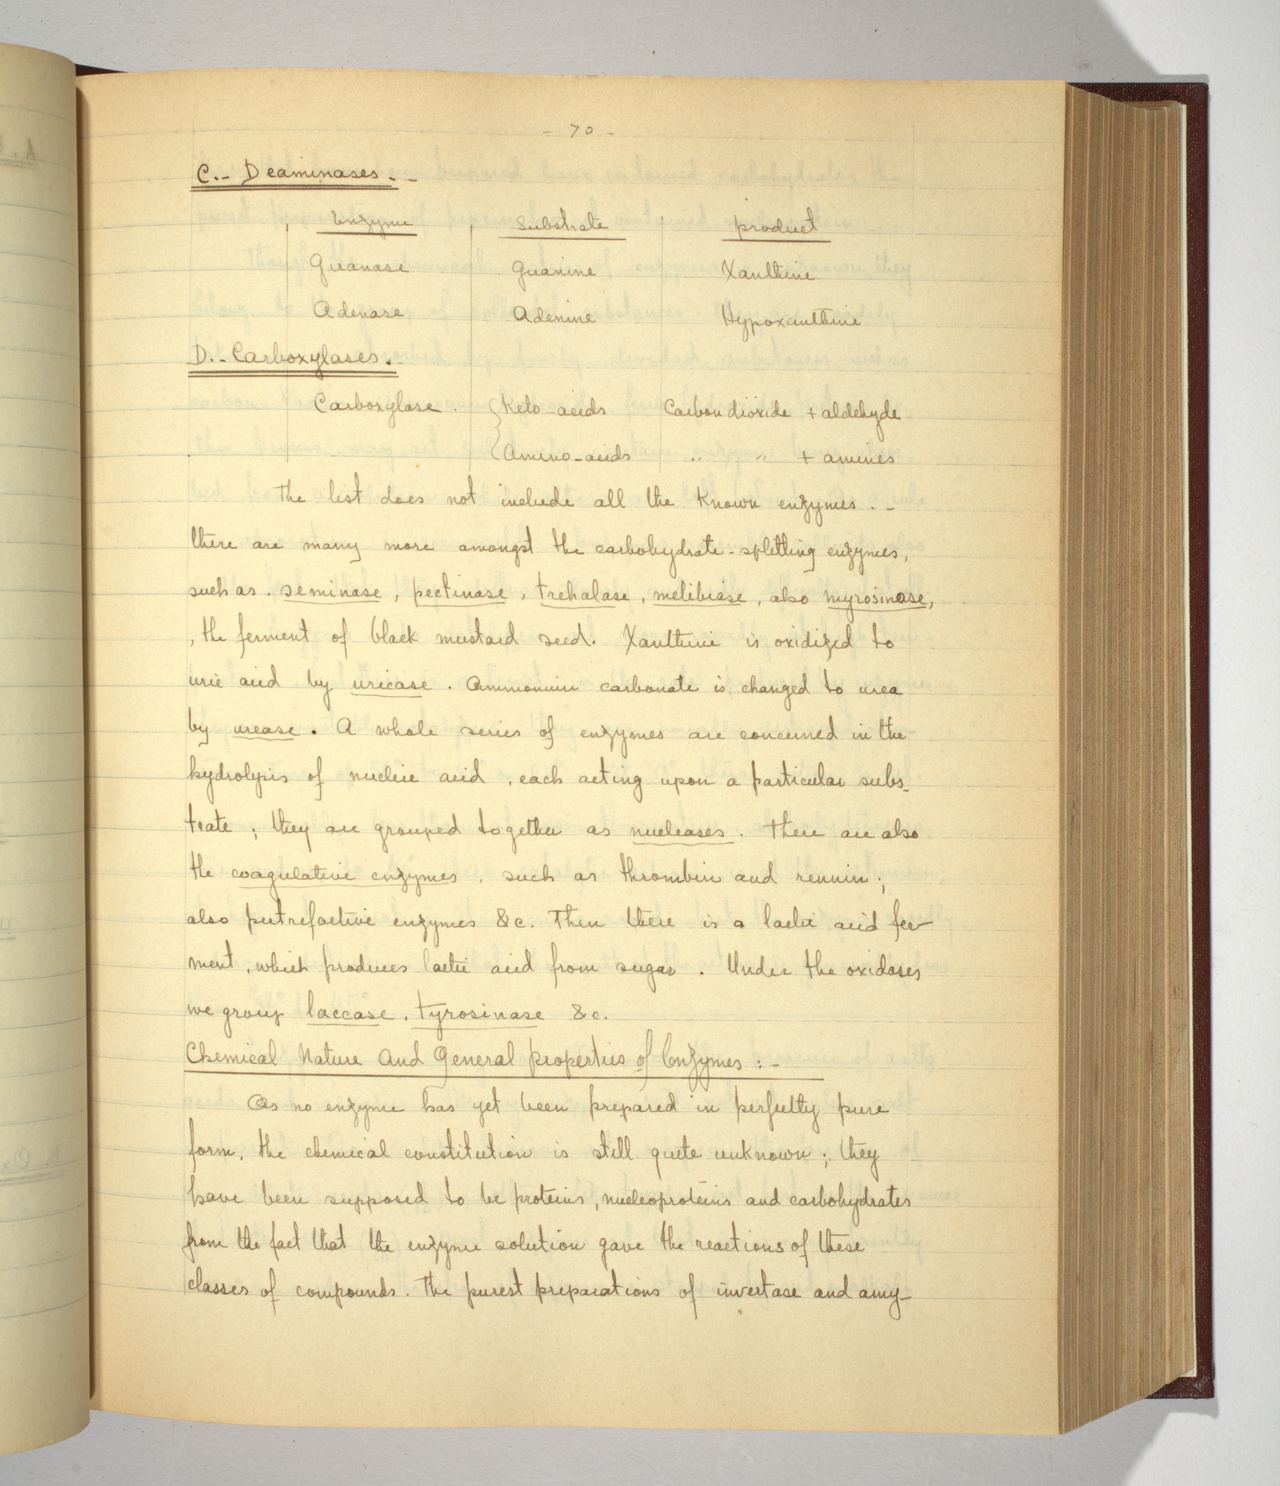 - 70 -
C.- Deaminases. -
Enzyme Substrate product
Guanase Guanine Xanthine
Adenase Adenine Hypoxanthine
D.- Carboxylases.
Carboxylase. Keto-acids Carbondioxide + aldehyde
Amino-acids " " + amines
The list does not include all the known enzymes. -
there are many more amongst the carbohydrate-splitting enzymes,
such as. seminase, pectinase, trehalase, melibiase, also myrosinase,
, the ferment of black mustard seed. Xanthine is oxidized to
uric acid by uricase. Ammonium carbonate is changed to urea
by urease. A whole series of enzymes are concerned in the
hydrolysis of nucleic acid, each acting upon a particular subs-
trate; they are grouped together as nucleases. There are also
the coagulative enzymes, such as thrombin and rennin;
also putrefactive enzymes &c. Then there is a lactic acid fer-
ment, which produces lactic acid from sugar. Under the oxidases
we group laccase, tyrosinase &c.
Chemical Nature and General properties of Enzymes :-
As no enzyme has yet been prepared in perfectly pure
form, the chemical constitution is still quite unknown; they
have been supposed to be proteins, nucleoproteins and carbohydrates
from the fact that the enzyme solution gave the reactions of these
classes of compounds. The purest preparations of invertase and amy-